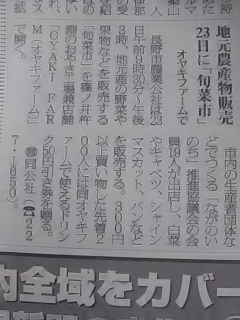 地元農産物販売
23日に「旬菜市」
オヤキファームで
長野市農業公社は23
日午前9時30分〜午後
3時、地元産の野菜や
果物などを販売する
「旬菜市」を篠ノ井杵
淵のおやき工場兼店舗
「OYAKI FAR
M(オヤキファーム)」
で開く。
市内の生産者団体な
どでつくる「ながのい
のち」推進協議会の会
員19人が出店し、白菜
やキャベツ、シャイン
マスカット、パンなど
を販売する。300円
以上買い物した先着2
00人には同オヤキフ
ァームで使えるドリン
ク50円引き券を贈る。
問同公社(☎22
7・1630)。
内全域をカバー